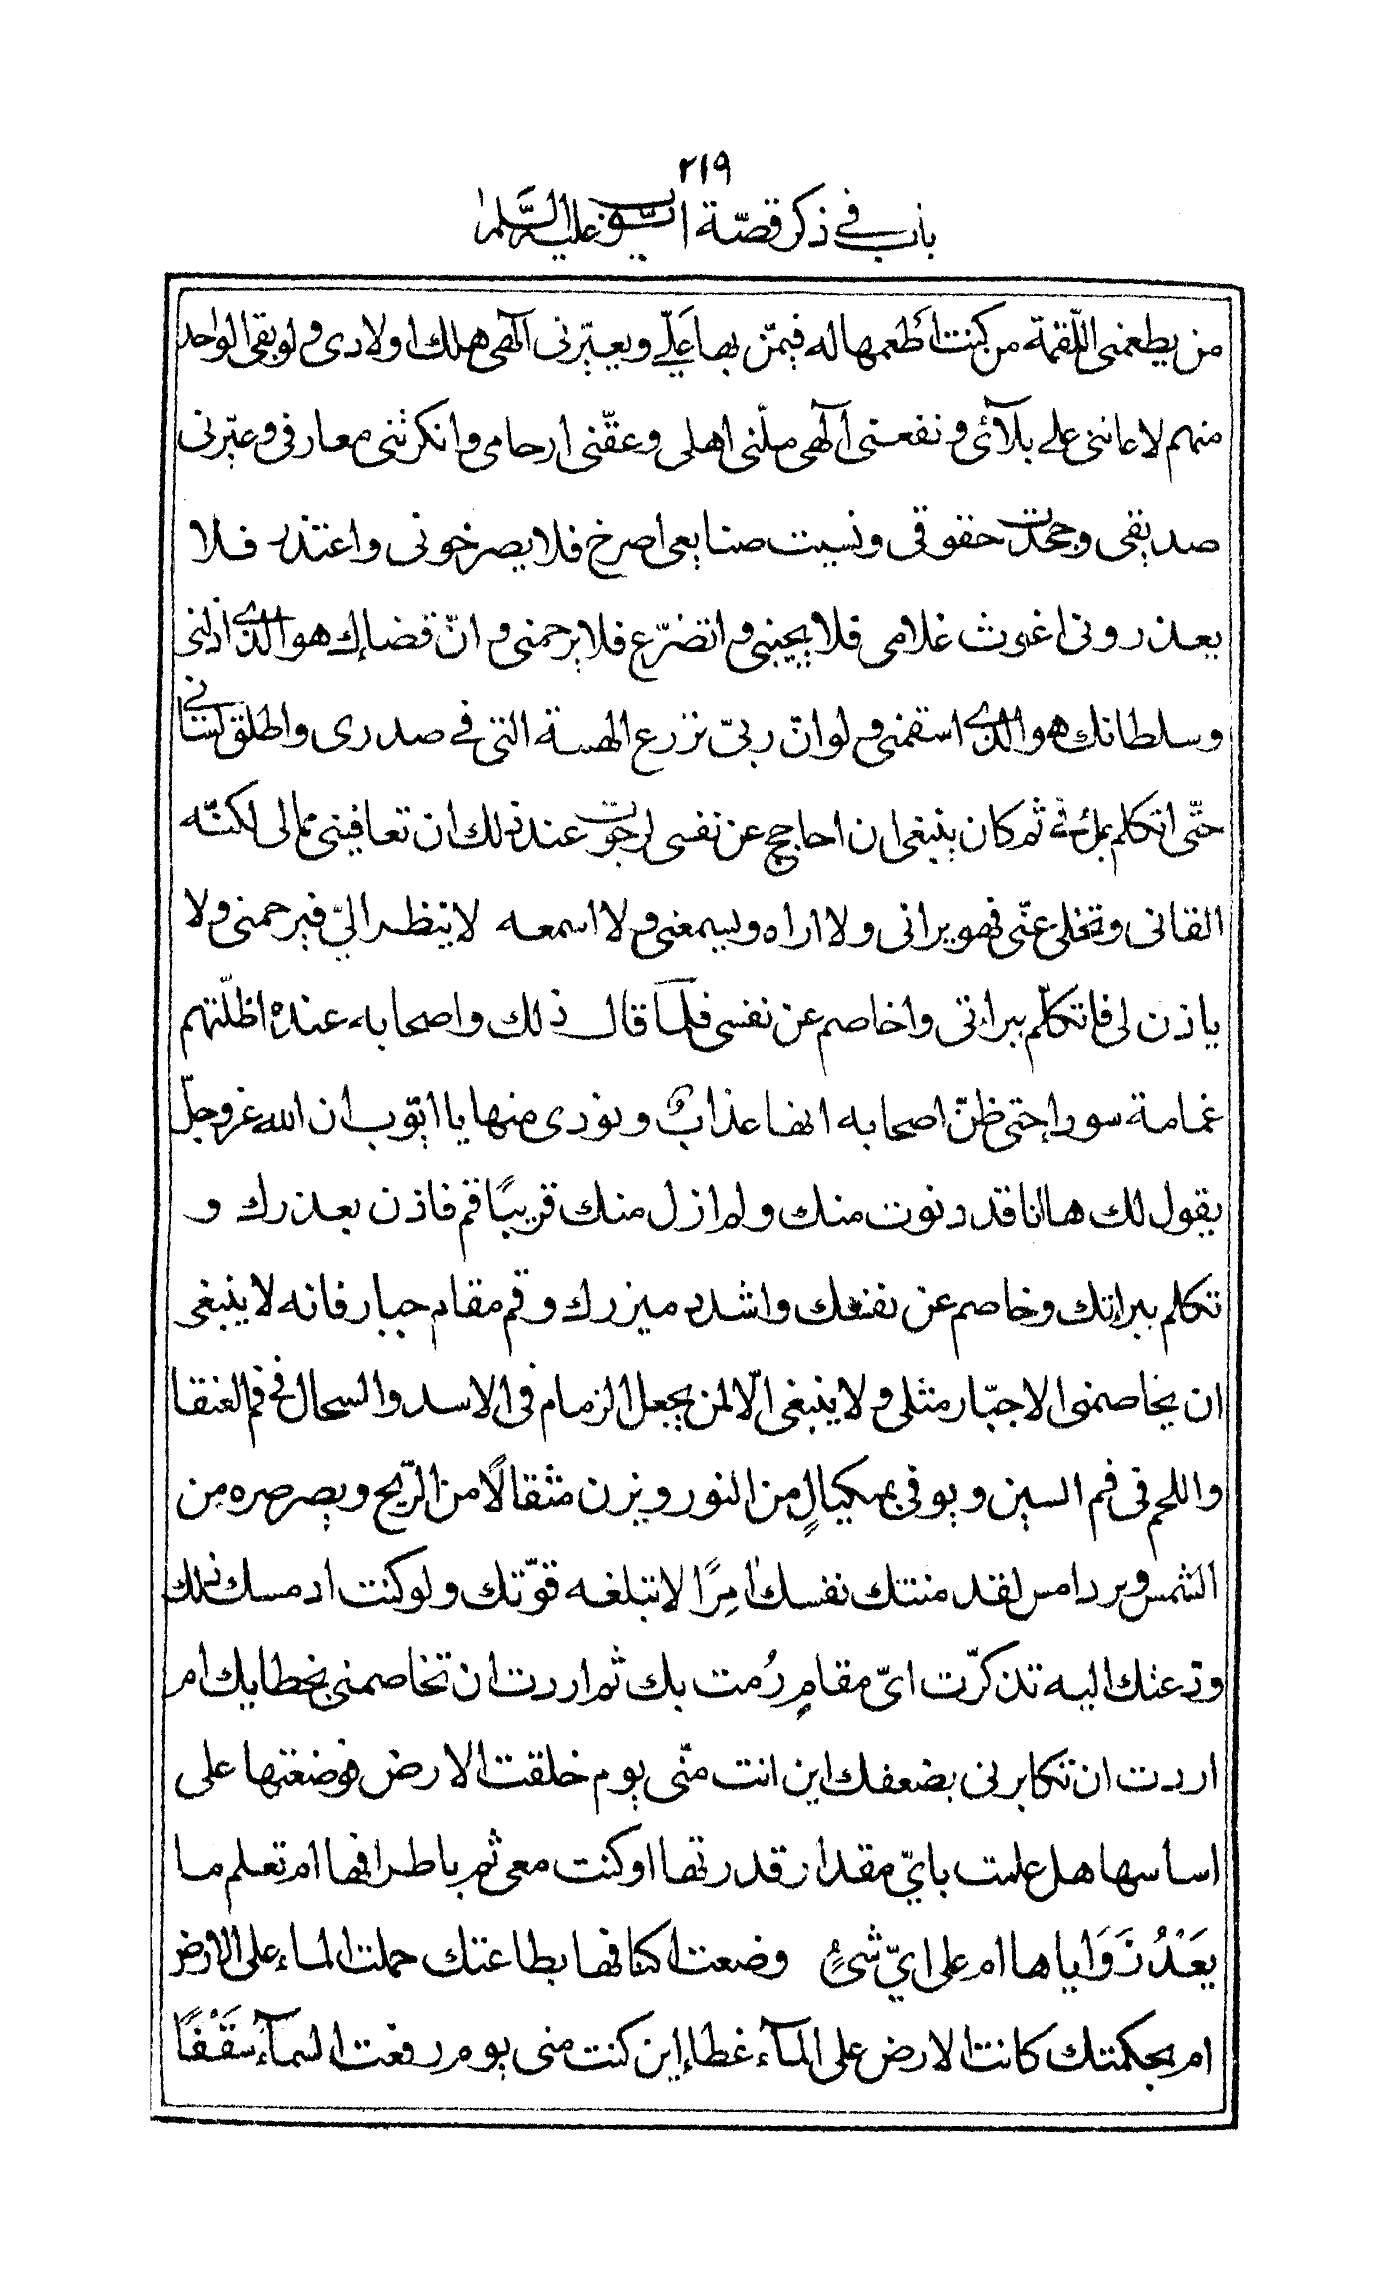 ٢١٩
باب في ذكر قصّة ايّوب عليه السّلام
من يطعمني اللّقمة من كنت اطعمها له فيمّن بها عَلَيّ ويعيّرني آلهي هلك اولادي ولو بقي الواحد
منهم لاعانني علي بلآئي ونفعني آلهي ملّني اهلي وعقّني ارحامي وانكرتني معارفي وعيّرني
صديقي وجحدت حقوقي ونسيت صنايعي اصرخ فلا يصرخوني واعتذر فلا
يعذروني اغوث غلامي فلا يجيبني واتضرّع فلا يرحمني وانّ قضاءك هو الذي اذلني
وسلطانك هو الذي اسقمني ولو انّ ربيّ نزع الهيبة التي في صدري واطلق لساني
حتّى اتكلم بملء في ثم كان ينبغي ان احاجج عن نفسي لرجوت عند ذلك ان تعافيني ممالي لكنّه
القاني وتخلي عنّي فهو يراني ولا اراه ويسمعني ولا اسمعه لا ينظر اليّ فيرحمني ولا
ياذن لي فاتكلّم ببراءتي واخاصم عن نفسي فلمّا قال ذلك واصحابه عنده اظلّتهم
غمامة سوداء حتى ظنّ اصحابه انها عذابٌ ونودي منها يا ايّوب ان الله عزوجلّ
يقول لك ها انا قد دنوت منك ولم ازل منك قريبًا قم فاذن بعذرك و
تكلم ببراءتك وخاصم عن نفسك واشدد ميزرك وقم مقام جبار فانه لا ينبغي
ان يخاصمني الا جبّار مثلي ولا ينبغي الّا لمن يجعل الزمام في الاسد والسحال في فم العنقا
واللحم في فم السين ويوفي بمكيالٍ من النور ويزن مثقالًا من الرّيح ويصر صره من
الشمس ويرد امس لقد منتك نفسك امرًا لا تبلغه قوّتك ولو كنت اد مسك ذلك
ودعتك اليه تذكرّت ايّ مقامٍ رُمت بك ثم اردت ان تخاصمني بخطايك ام
اردت ان تكابرني بضعفك اين انت منّي يوم خلقت الارض فوضعتها على
اساسها هل علمت بايّ مقدار قدرتها اوكنت معي ثم باطرافها ام تعلم ما
يَعْدُ زَوَاياها ام على ايّ شيءٍ وضعت اكنافها بطاعتك حملت الماء على الارض
ام بحكمتك كانت الارض على المآء غطاء اين كنت مني يوم رفعت السمآء سَقْفًا